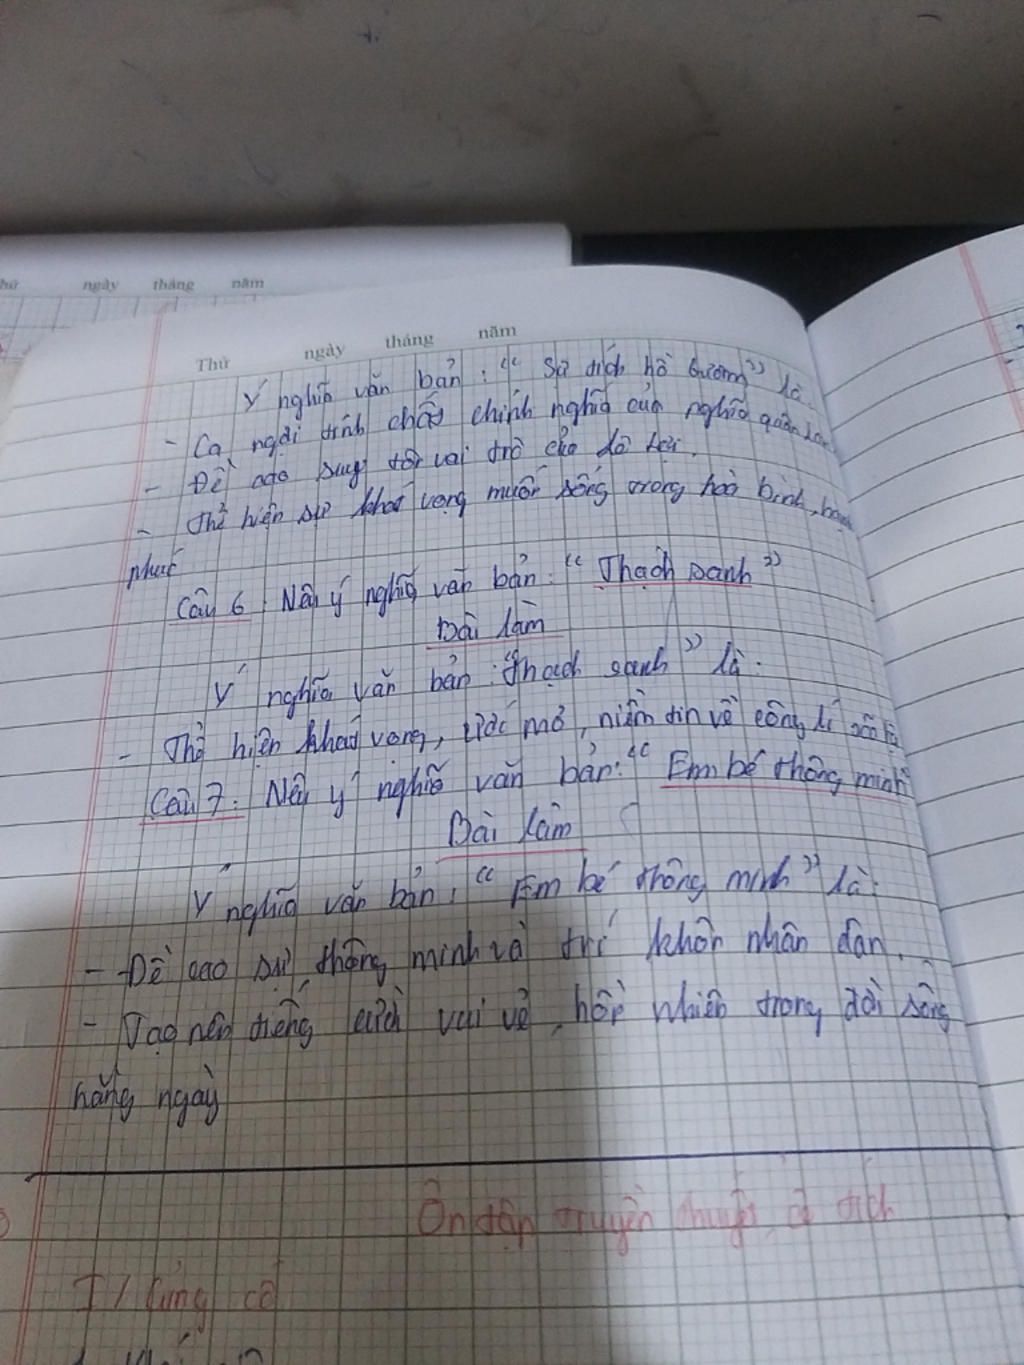 Thứ ngày tháng năm
ngày tháng năm
Ý nghĩa văn bản: "Sự tích hồ Gươm" là:
- Ca ngợi tính chất chính nghĩa của nghĩa quân
- Đề cao suy tôn vai trò của Lê Lợi.
- Thể hiện sự khát vọng muốn sống trong hoà bình, hạnh
phúc
Câu 6: Nêu ý nghĩa văn bản: "Thạch Sanh"
Bài làm
Ý nghĩa văn bản: "Thạch sanh" là:
- Thể hiện khát vọng, ước mơ, niềm tin về công lí xã hội
Câu 7: Nêu ý nghĩa văn bản: "Em bé thông minh"
Bài làm
Ý nghĩa văn bản: "Em bé thông minh" là:
- Đề cao sự thông minh và trí khôn nhân dân.
- Tạo nên tiếng cười vui vẻ, hồn nhiên trong đời sống
hằng ngày
Ôn tập truyền thuyết, cổ tích
I/ Củng cố